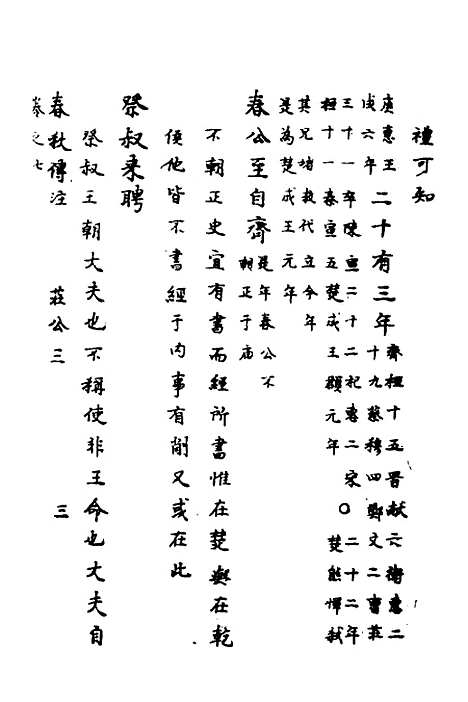 禮可知
庚惠王
戌六年
二十有三年
齊桓十五晉獻六衛惠二
十九蔡穆四鄭文二曹莊
三十一卒陳宣二十二杞惠二宋〇二十二年
桓十一秦宣五楚成王頵元年 楚熊惲弒
其兄堵敖代立今年
是為楚成王元年
春公至自齊
是年春公不
朝正于廟
不朝正史宜有書而經所書惟在楚與在乾
侯他皆不書經于内事有削又或在此
祭叔來聘
祭叔王朝大夫也不稱使非王命也大夫自
春秋傳注 莊公三 三
卷之七